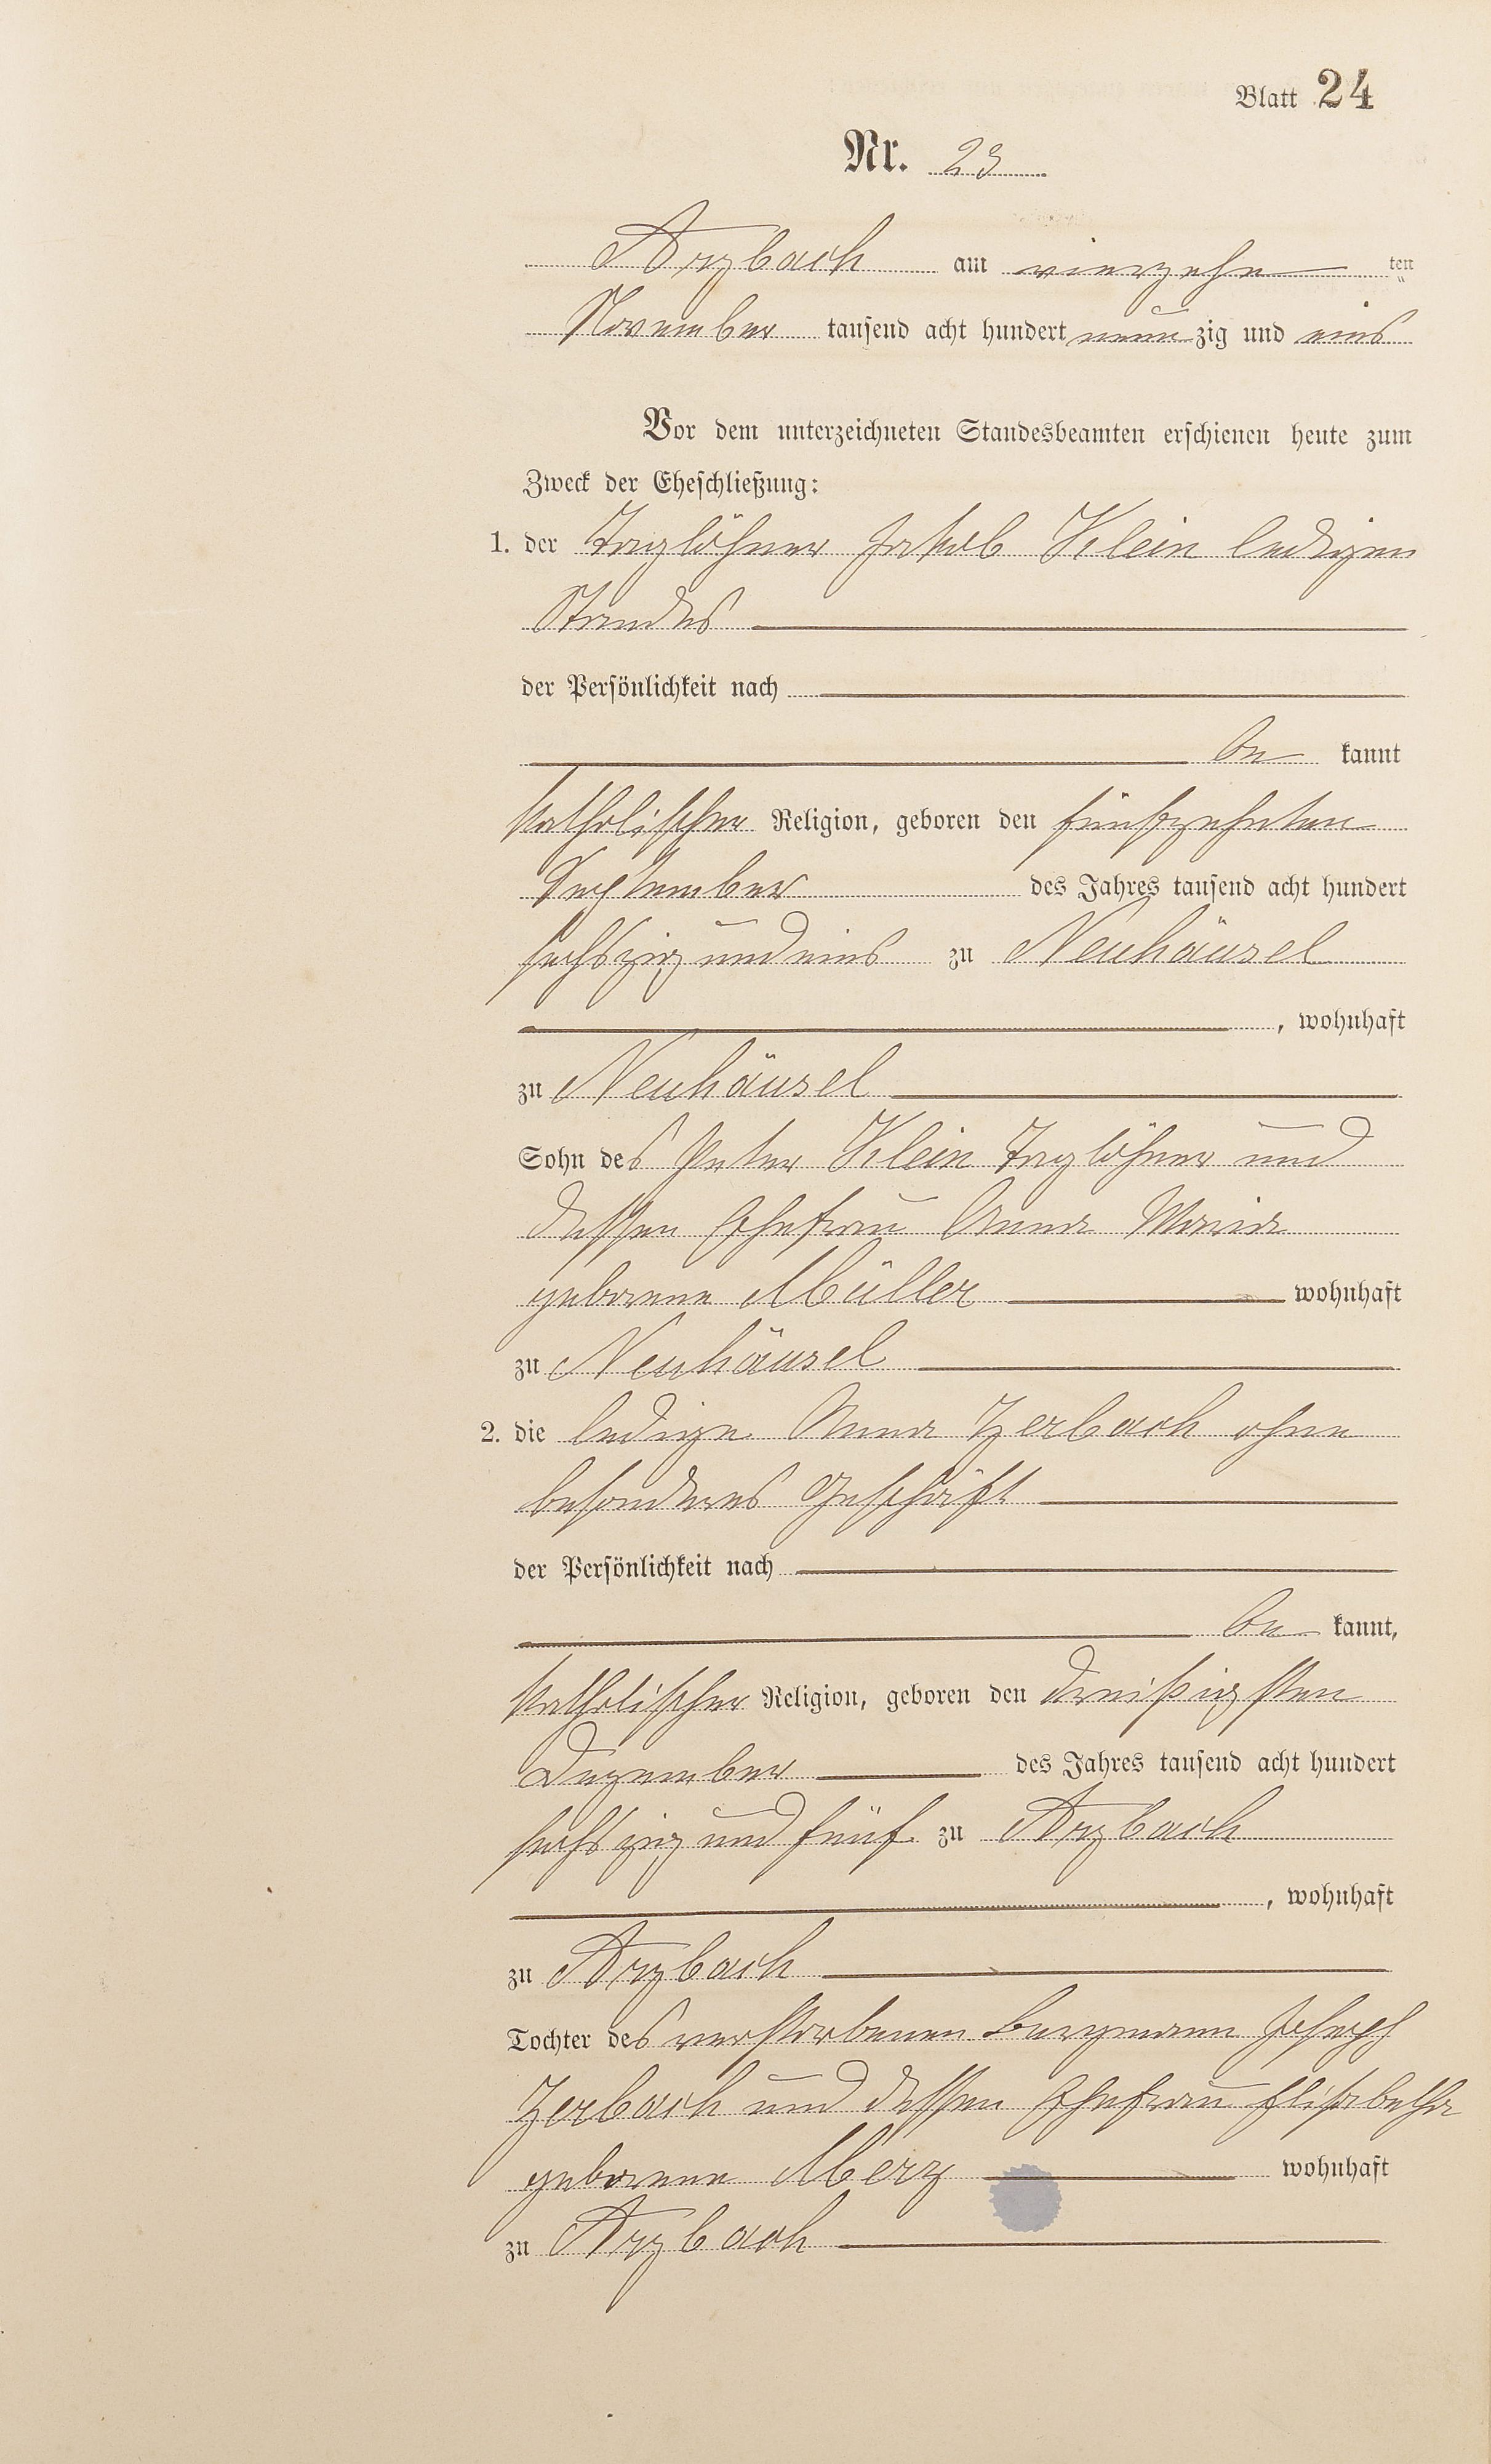 Blatt 24
Nr. 23
Arzbach am vierzehn ten
November tausend acht hundert neunzig und eins
Vor dem unterzeichneten Standesbeamten erschienen heute zum
Zweck der Eheschließung:
1. der Taglöhner Jakob Klein ledigen
Standes
der Persönlichkeit nach
be kannt
katholischer Religion, geboren den fünfzehnten
September des Jahres tausend acht hundert
sechszig und eins zu Neuhäusel
, wohnhaft
zu Neuhäusel
Sohn des Peter Klein Taglöhner und
dessen Ehefrau Anna Maria
geborene Müller wohnhaft
zu Neuhäusel
2. die ledige Anna Zerbach ohne
besonderes Geschäft
der Persönlichkeit nach
be kannt,
katholischer Religion, geboren den dreißigsten
Dezember des Jahres tausend acht hundert
sechszig und fünf zu Arzbach
, wohnhaft
zu Arzbach
Tochter des verstorbenen Bergmann Joseph
Zerbach und dessen Ehefrau Elisabetha
geborene Merz wohnhaft
zu Arzbach